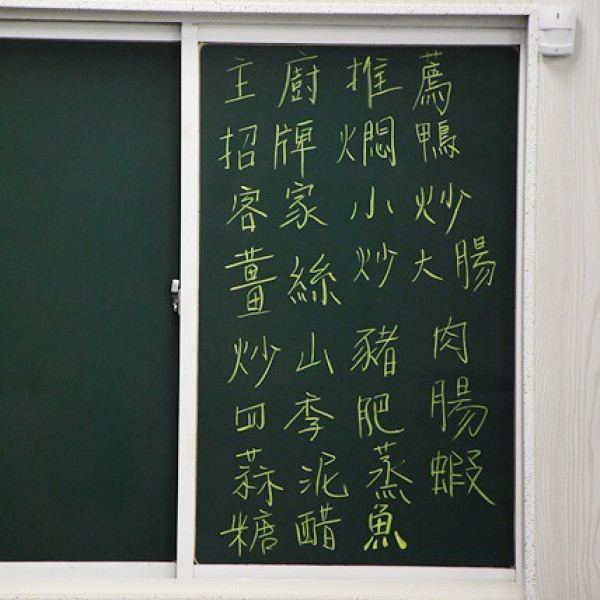 主廚推薦
招牌燜鴨
客家小炒
薑絲炒大腸
炒山豬肉
四季肥腸
蒜泥蒸蝦
糖醋魚